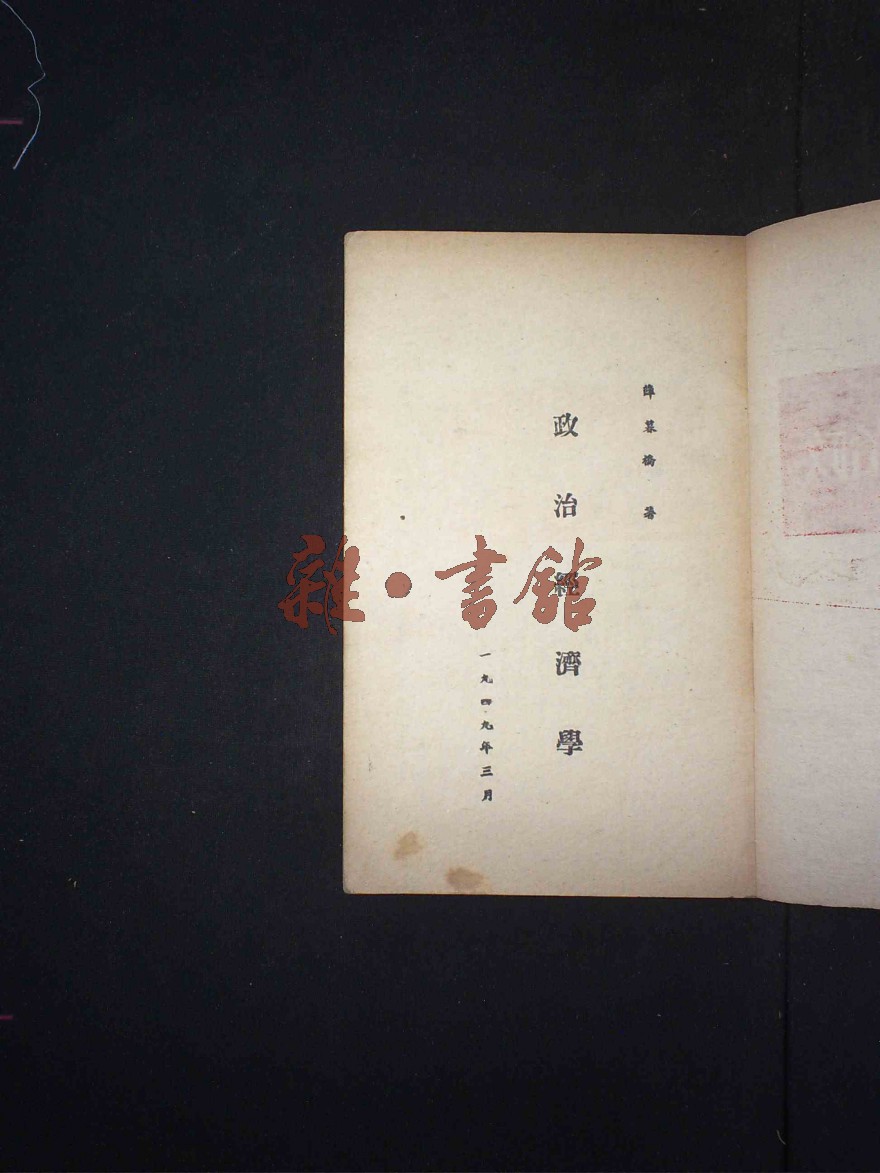 薛暮橋 著
政治經濟學
一九四九年三月
雜·書館